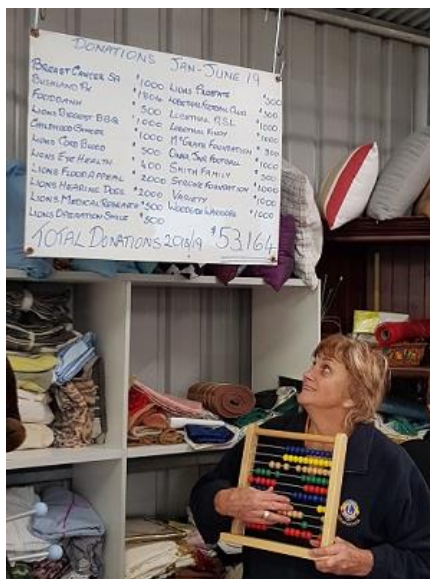 DONATIONS JAN-JUNE 19
BREAST CANCER SA $1000
BUSHLAND PK
FOODBANK $500
LIONS BIGGEST BBQ $1000
CHILDHOOD CANCER
LIONS CORD BLOOD $500
LIONS EYE HEALTH $400
LIONS FLOOD APPEAL 2000
LIONS HEARING DOGS $2000
LIONS MEDICAL RESEARCH $500
LIONS OPERATION SMILE $500
LIONS PROSTATE $500
LOBETHAL FOOTBALL CLUB
LOBETHAL RSL $1000
LOBETHAL KINDY $1000
McGRATH FOUNDATION
JNR FOOTBALL $1000
SMITH FAMILY
STROKE FOUNDATION $1000
VARIETY $1000
WOODEN WARRIORS $1000
TOTAL DONATIONS 2018/19 $53,164